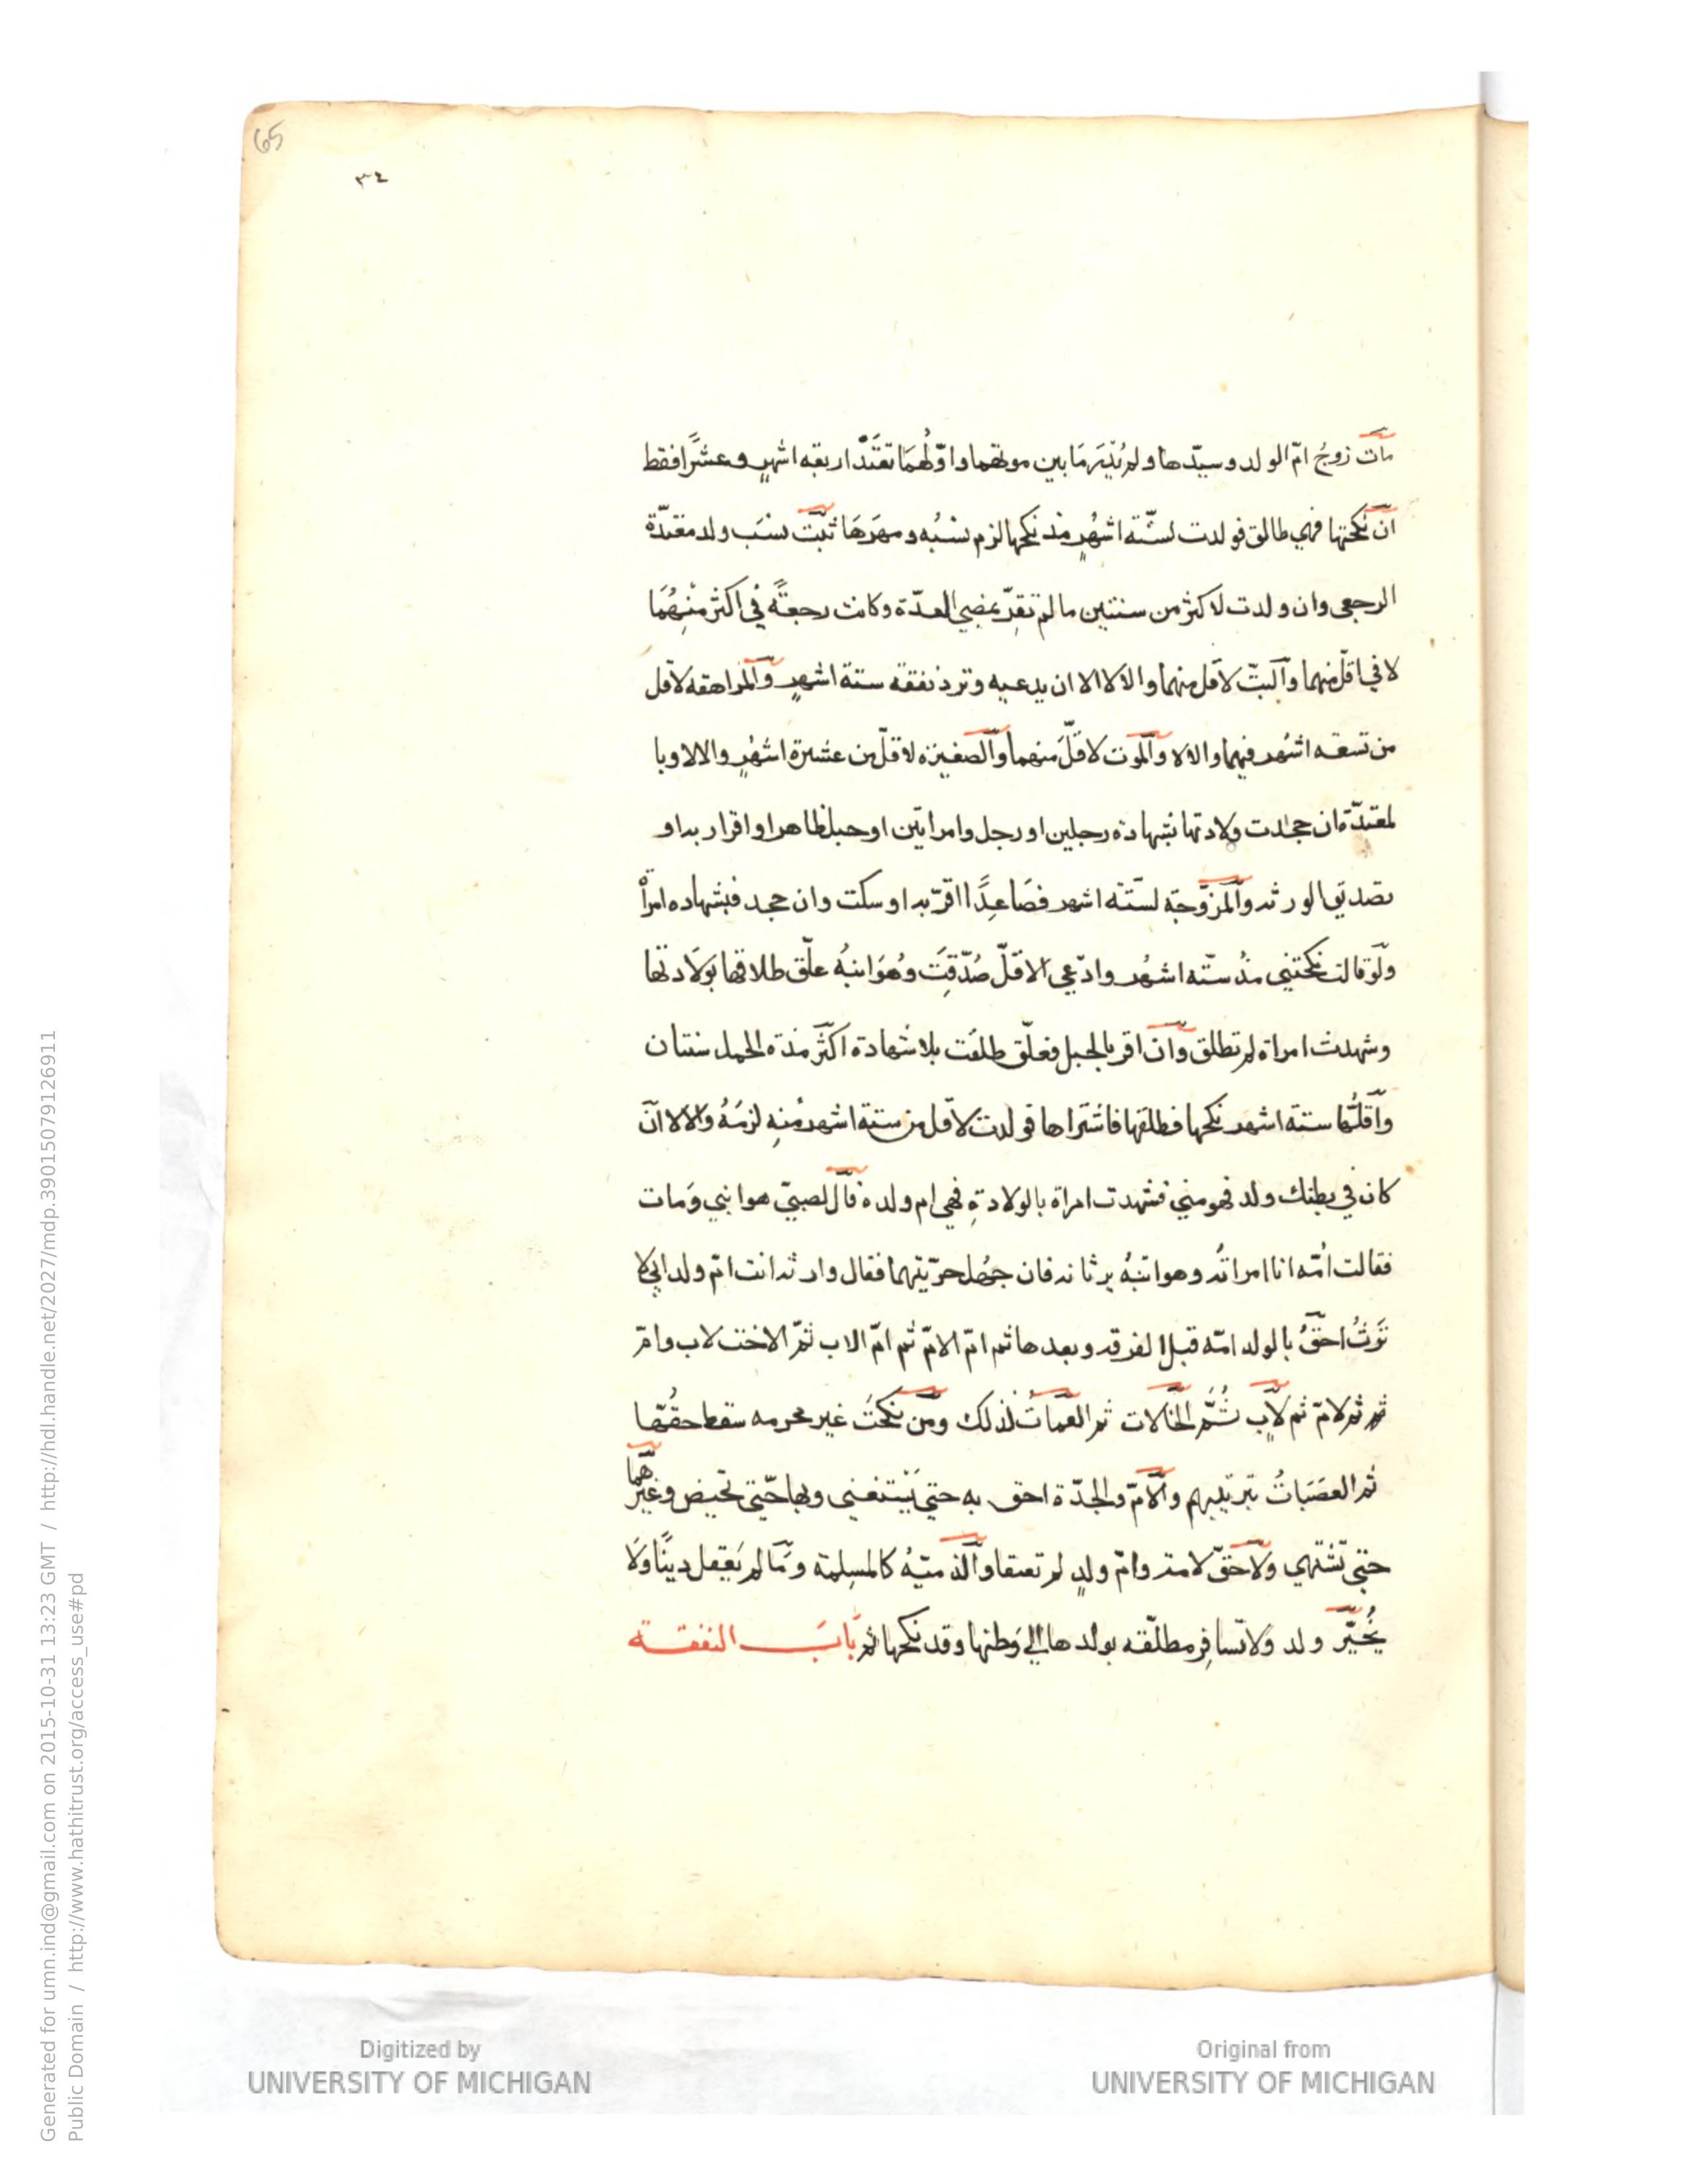 65
٣٤
مات زوج امّ الولد وسيّدها ولم يُدْرَ مَا بين موتهما واوّلُهُمَا تعتَدّ اربعه اشهرٍ وعشرًا فقط
ان نكحتها فهي طالق فولدت لستّة اشهُرٍ منذ نكحها لزم نسبُه ومهرَهَا ثبّت نسَب ولد معتدّة
الرجعى وان ولدت لاكثر من سنتين ما لم تقِرّ بمضي العدّة وكانت رجعتًه في اكثر منهُمَا
لا في اقلّ منهما والبتّ لاقل منهما والا لا الا ان يدعيه وترد نفقه ستة اشهرٍ والمراهقه لاقل
من تسعه اشهُر فيهما والا لا والموت لاقلّ منهما والصغيره لاقلّ من عشرة اشهُرٍ والا لا وبا
لمعتدّة ان جحدت ولادتها بشهادة رجلين او رجل وامراتين او حبل ظاهر او اقرار به او
تصديق الورثه والمزوّجة لستّه اشهر فصَاعِدًا ا اقرّ به او سكت وان جحد فبشهاده امراْ
ولو قالت نكحتني مذُ ستّه اشهُر وادّعي الاقلّ صُدّقِتَ وهُوَ ابنهُ علّق طلاقها بوَلَادتها
وشهدت امراة لم تطلق وان اقر بالحبل فعلّق طلقت بلا شهادة اكثَر مدة الحمل سنتان
واقلُّها ستة اشهر نكحها فطلقها فاشتراها فولدت لاقل من ستة اشهر مُنِه لزمَهُ والا لا انّ
كان في بطنك ولد فهو مني فشهدت امراة بالولادةِ فهي ام ولده قال لصبيّ هو ابني وَمات
فقالت اُمّه انا امراتُه وهو ابنهُ يرثانه فان جهُل حرّيتهما فقال وارثه انت امّ ولد ابي لا
تَرثُ احقّ بالولد امّه قبل الفرقه وبعدها ثم امّ الامّ ثم امّ الاب ثمّ الاخت لاب وامّ
ثم ثم لامّ ثم لابٍ ثُمَّ الخالات ثم العمّاتُ لذلك ومن نكحَتَ غير محرمه سقط حقُهّا
ثم العصَبَاتُ بترتيبهم والامّ والجدّة احق به حتي يَسْتغني وبها حّتي تحيض وغيرُهما
حتي تشتهي ولاحَقّ لامة وامّ ولدٍ لم تعتقا والذميّهُ كالمسلِمة وَما لم يَعِقل دينًا ولَا
يُخيّر ولد ولا تسافِر مطلّقه بولدها الي وَطنها وقد نكحها ثم بَابَ النفقة
Generated for umn.ind@gmail.com on 2015-10-31 13:23 GMT / http://hdl.handle.net/2027/mdp.39015079126911
Public Domain / http://www.hathitrust.org/access_use#pd
Digitized by
UNIVERSITY OF MICHIGAN
Original from
UNIVERSITY OF MICHIGAN